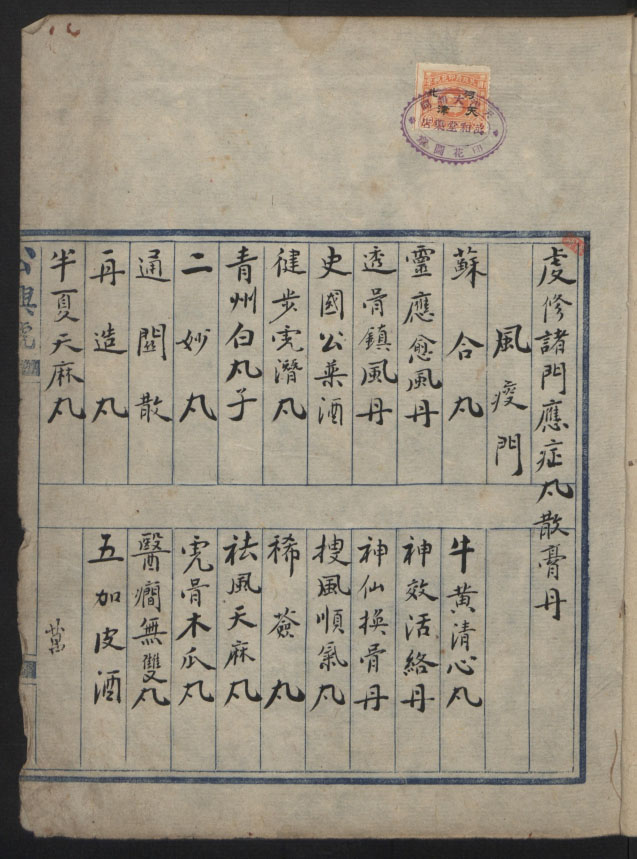 虔修諸門應症丸散膏丹
風疫門
蘇合丸
牛黃清心丸
靈應愈風丹
神效活絡丹
透骨鎮風丹
神仙換骨丹
史國公藥酒
搜風順氣丸
健步虎潛丸
稀薟丸
青州白丸子
祛風天麻丸
二妙丸
虎骨木瓜丸
通關散
醫癇無雙丸
再造丸
五加皮酒
半夏天麻丸